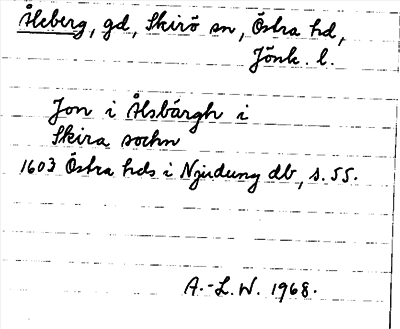 Åleberg, gd, Skirö sn, Östra hd,
Jönk. l.
Jon i Ålsbärgh i
Skira sochn
1603 Östra hds i Njudung db, s. 55.
A.-L.W. 1968.